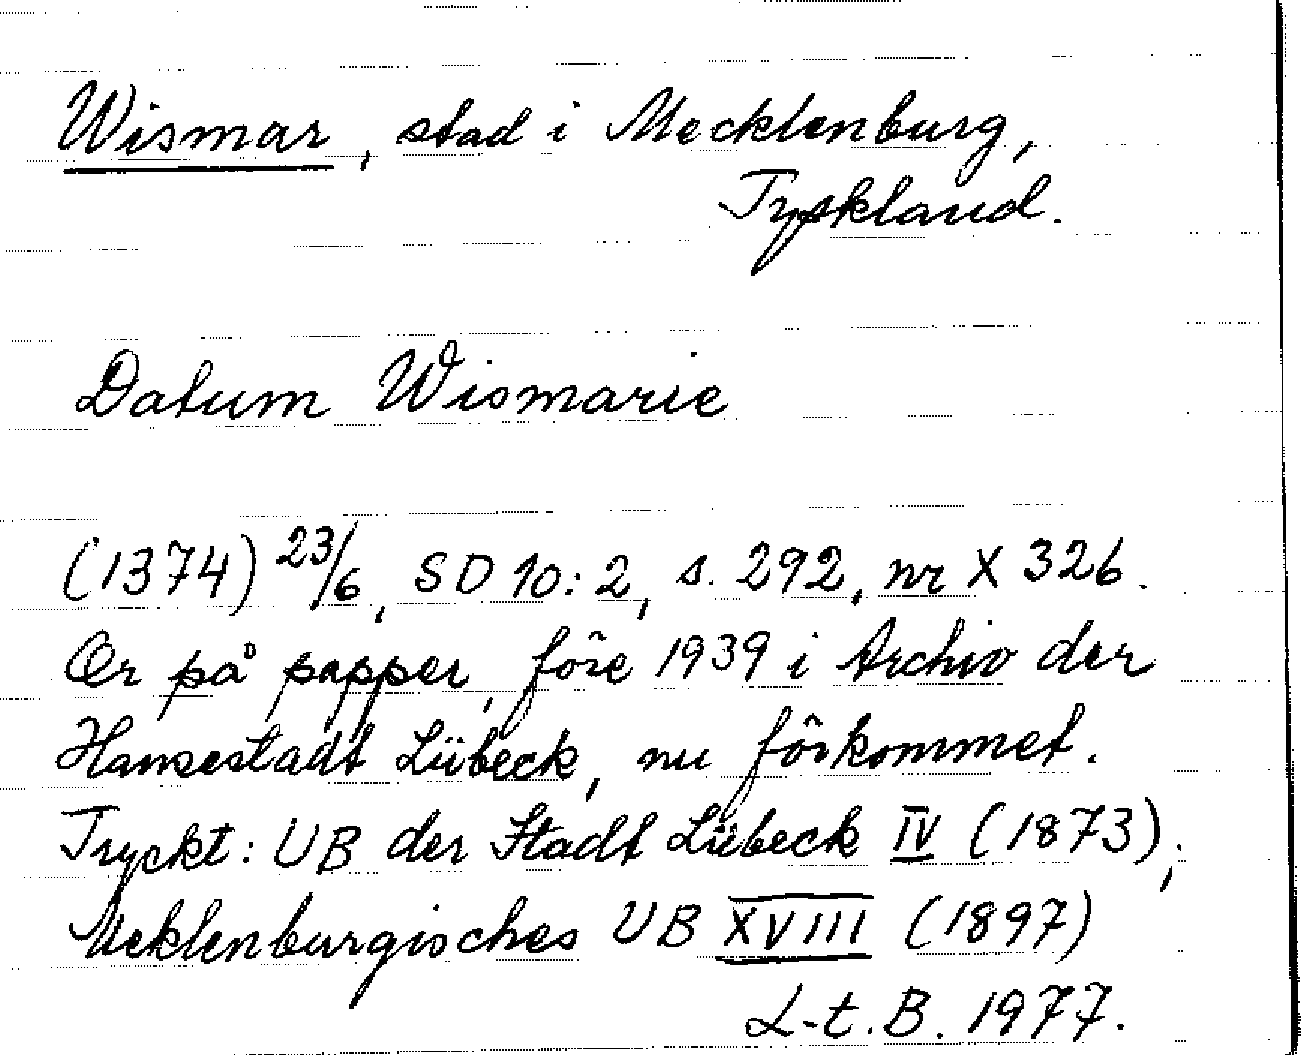 Wismar, stad i Mecklenburg,
Tyskland.
Datum Wismarie
(1374) 23/6, SD 10:2, s. 292, nr X 326.
Or på papper, före 1939 i Archiv der
Hansestadt Lübeck, nu förkommet.
Tryckt: UB der Stadt Lübeck IV (1873);
Meklenburgisches UB XVIII (1897)
L-t. B. 1977.